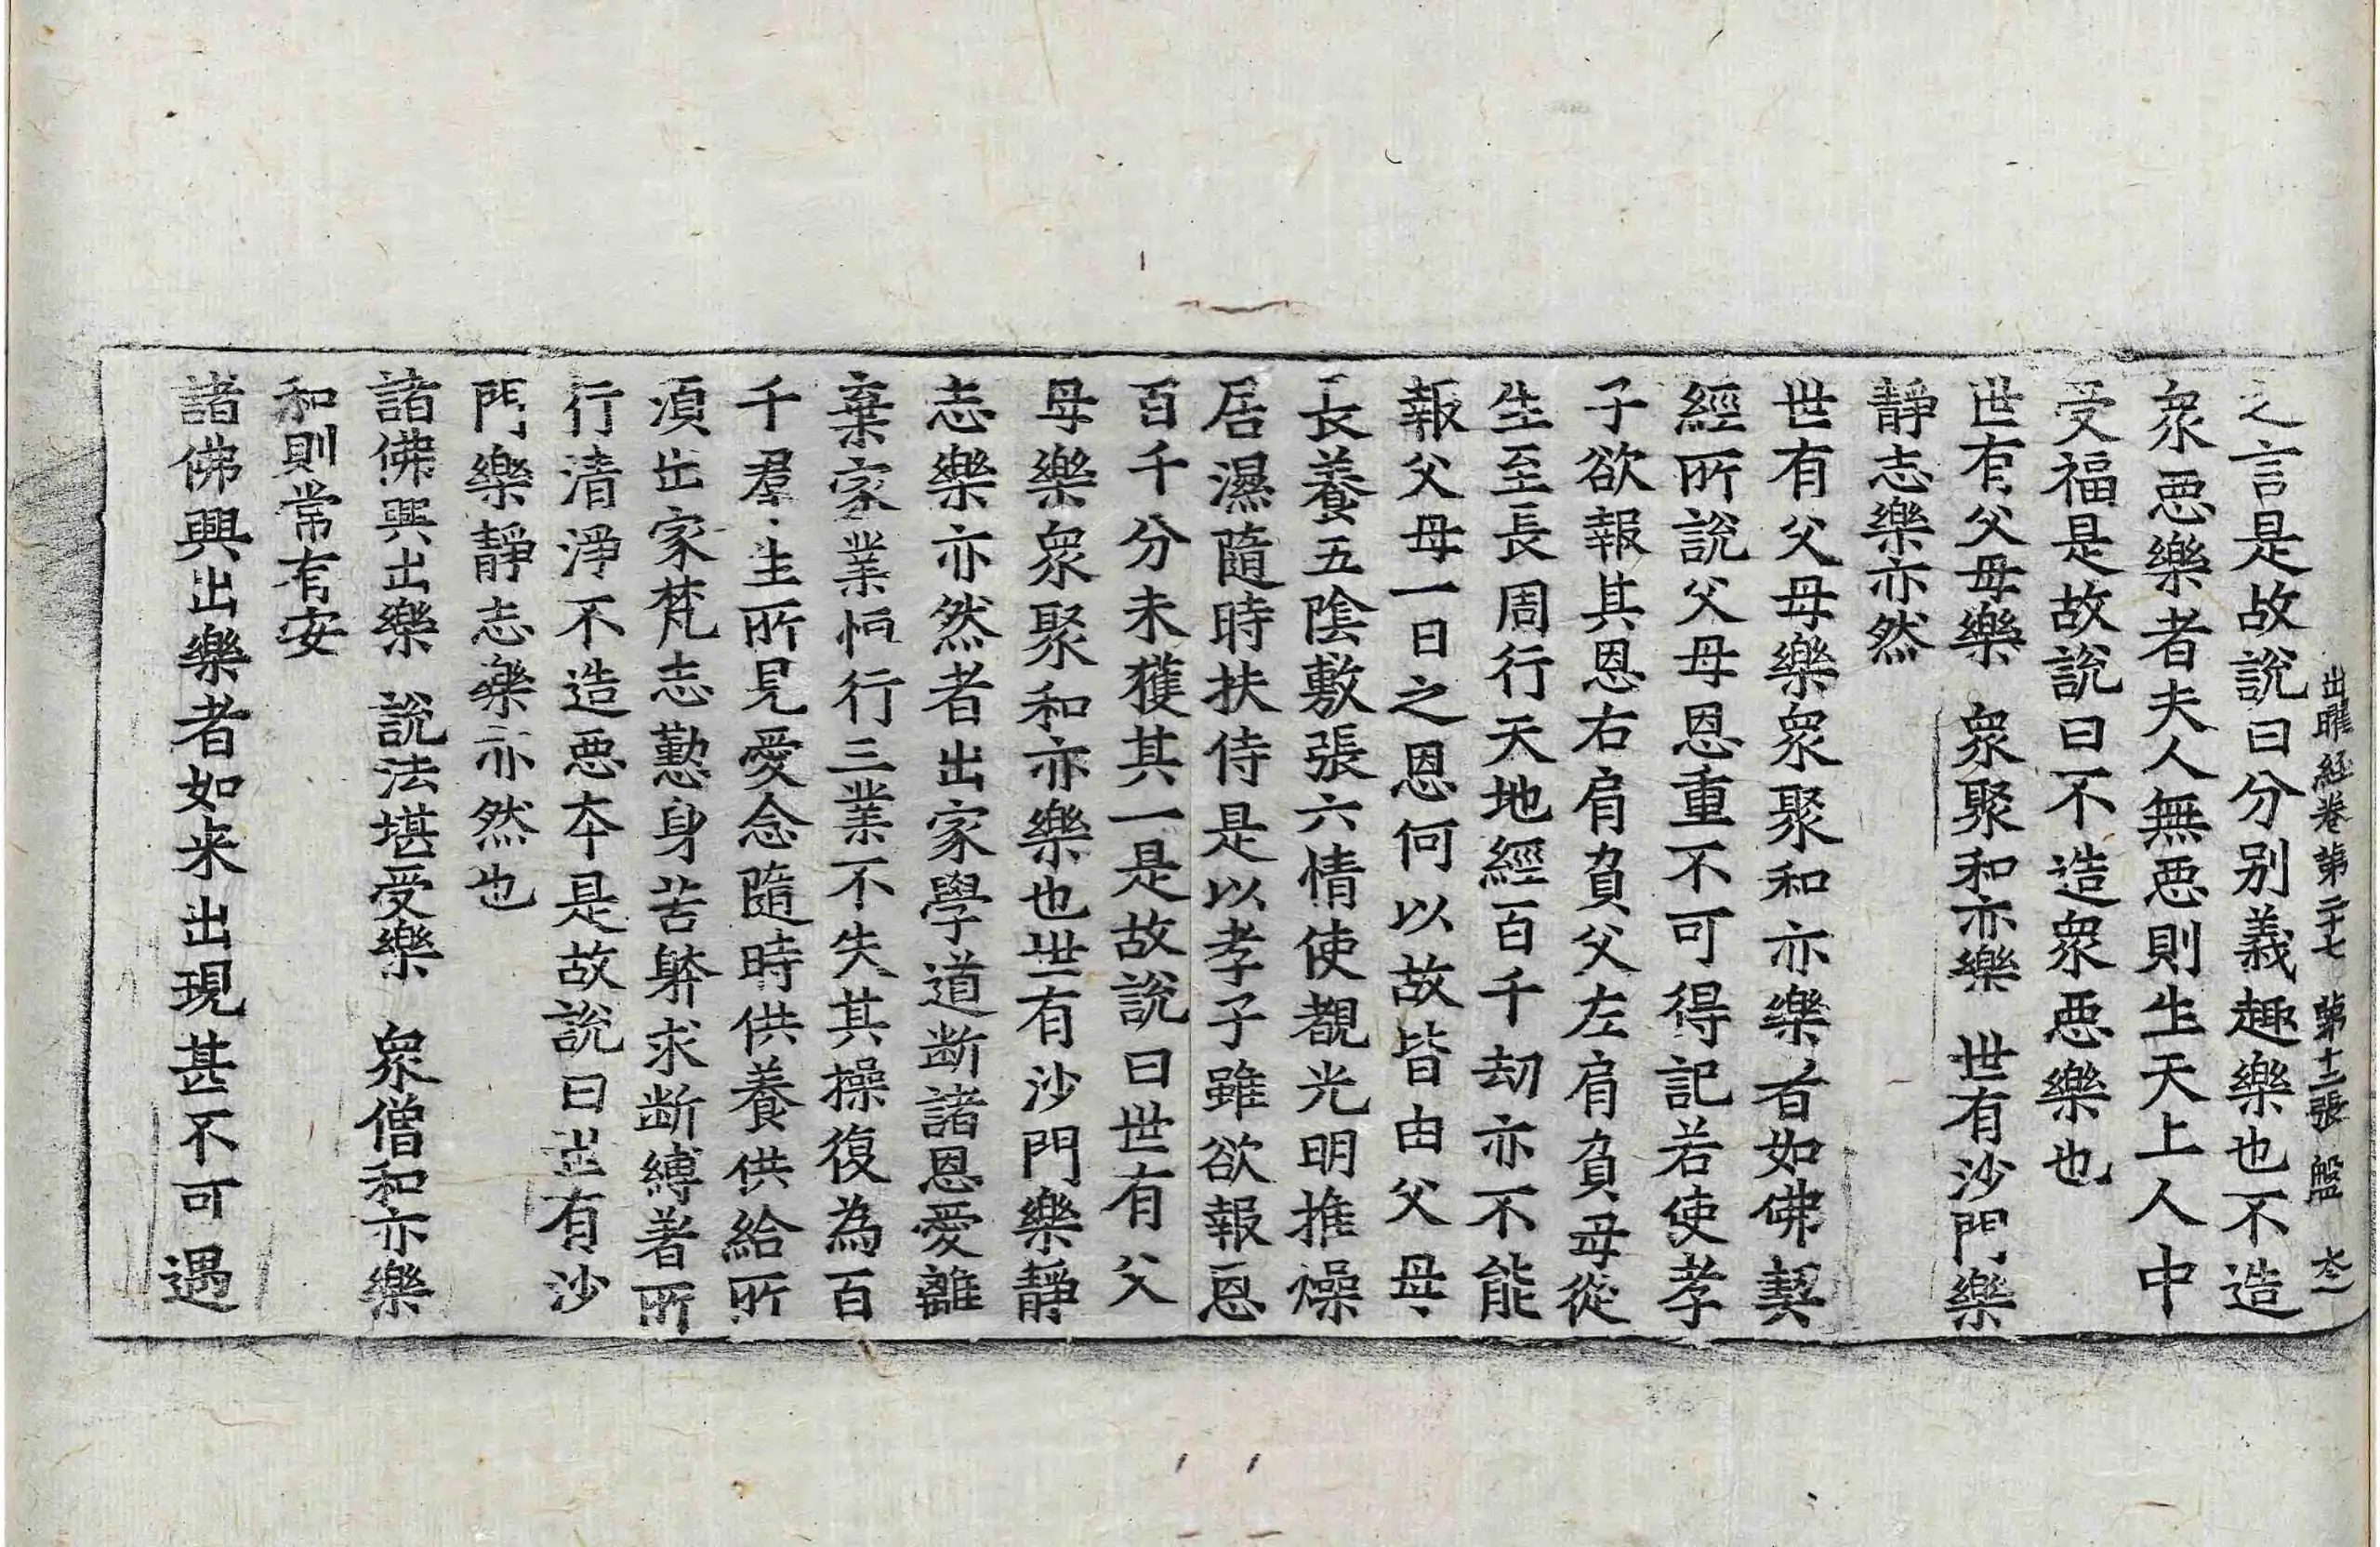 出曜經卷第二十七 第十二張 盤
之言是故說曰分別義趣樂也不造
衆惡樂者夫人無惡則生天上人中
受福是故說曰不造衆惡樂也
世有父母樂 衆聚和亦樂 世有沙門樂
靜志樂亦然
世有父母樂衆聚和亦樂者如佛契
經所說父母恩重不可得記若使孝
子欲報其恩右肩負父左肩負母從
生至長周行天地經百千劫亦不能
報父母一日之恩何以故皆由父母
長養五陰敷張六情使覩光明推燥
居濕隨時扶侍是以孝子雖欲報恩
百千分未獲其一是故說曰世有父
母樂衆聚和亦樂也世有沙門樂靜
志樂亦然者出家學道斷諸恩愛離
棄家業恒行三業不失其操復為百
千羣生所見愛念隨時供養供給所
須出家梵志懃身苦躰求斷縛著所
行清淨不造惡本是故說曰世有沙
門樂靜志樂亦然也
諸佛興出樂 說法堪受樂 衆僧和亦樂
和則常有安
諸佛興出樂者如来出現甚不可遇